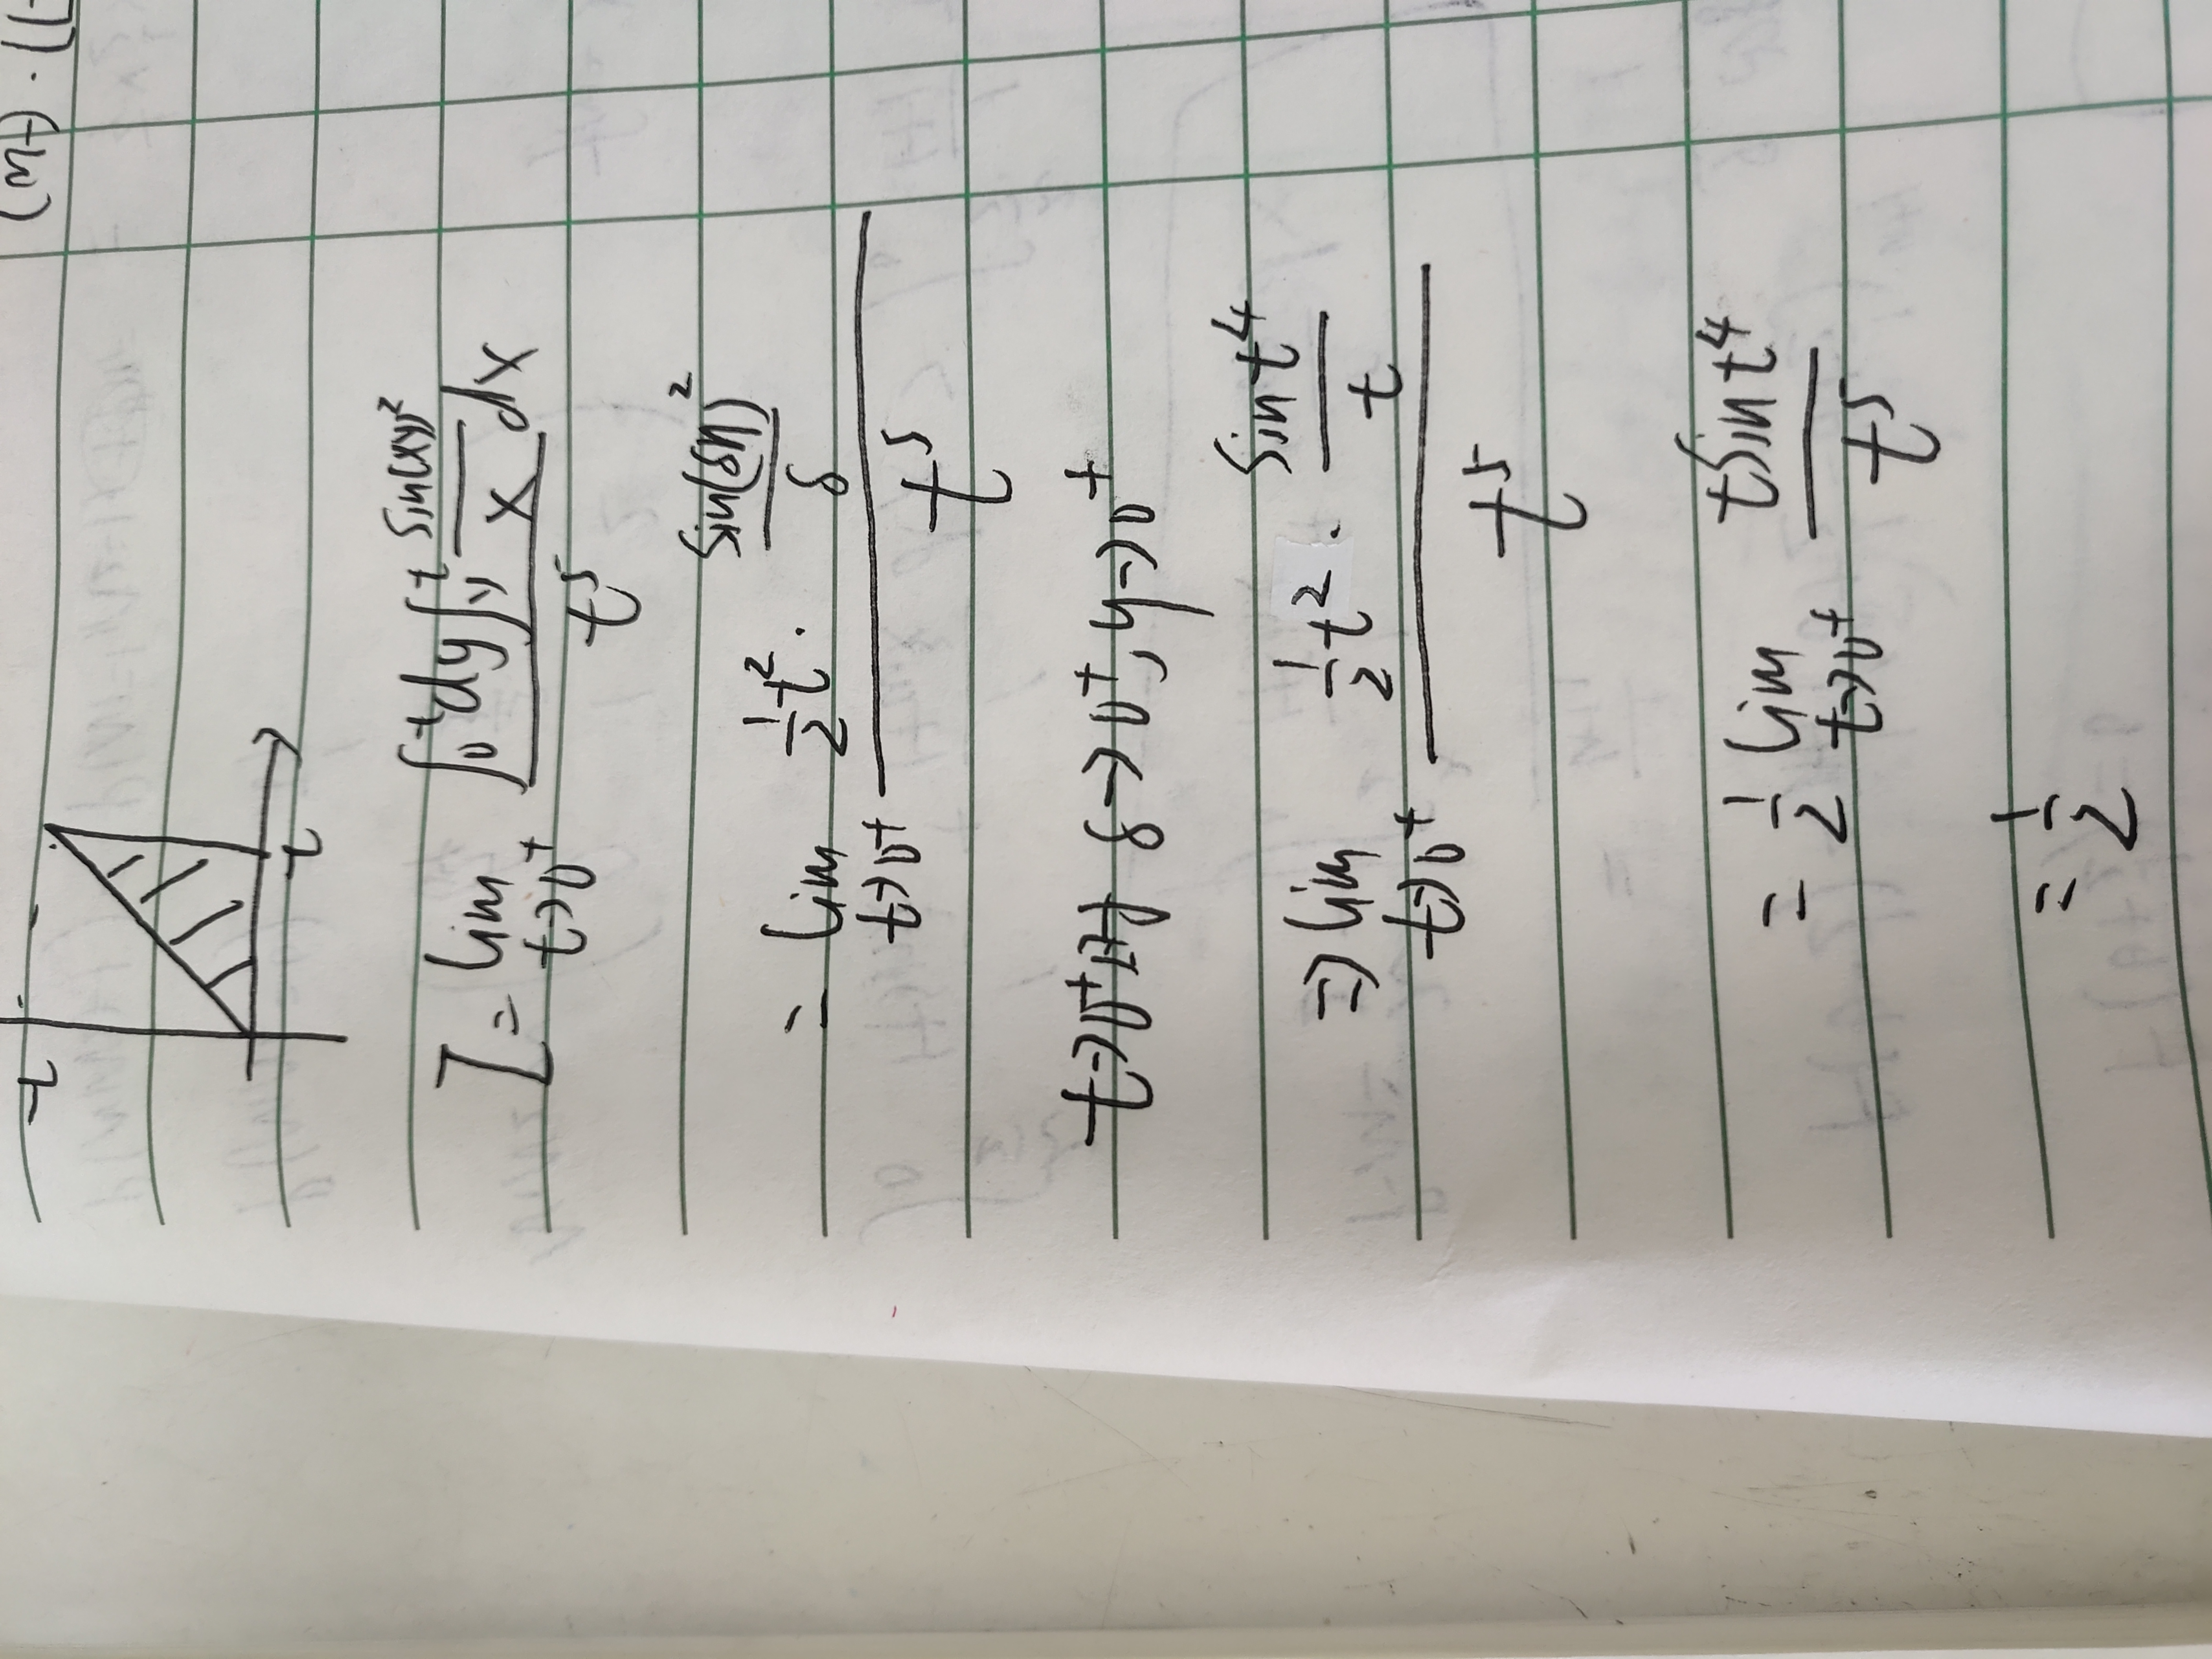 (m+) · [-
t
t
I = lim t→0⁺ ∫₀ᵗdy∫ᵧᵗ sin(xy)²/x dx / t⁵
= lim t→0⁺ ½t² · sin(δη)²/δ / t⁵
t→0⁺时 δ→0⁺, η→0⁺
⇒ lim t→0⁺ ½t² · sin t⁴/t / t⁵
= ½ lim t→0⁺ t sin t⁴/t⁵
= ½